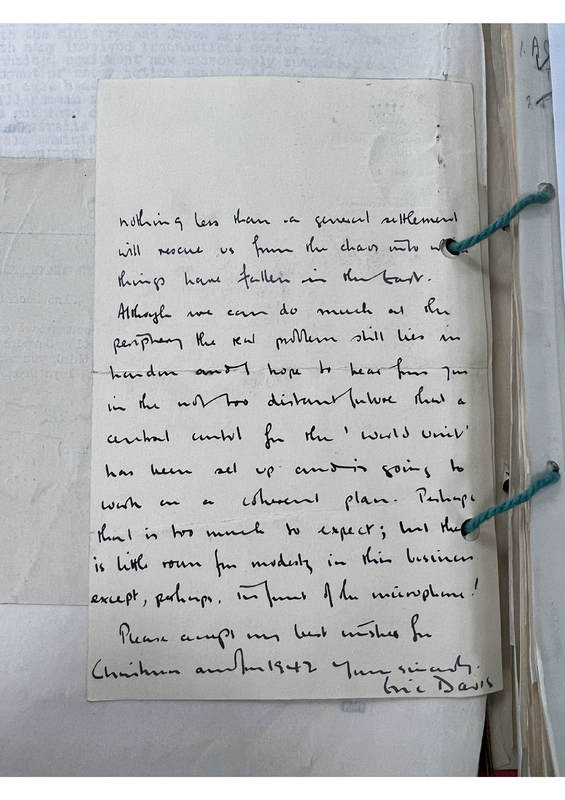 nothing less than a general settlement
will rescue us from the chaos into
things have fallen in the East.
Although we can do much at the
periphery the real problem still lies in
London and I hope to hear from you
in the not too distant future that a
central control for the 'world unit'
has been set up and is going to
work on a coherent plan. Perhaps
that is too much to expect; but there
is little room for modesty in this business
except, perhaps, in front of the microphone!
Please accept my best wishes for
Christmas and for 1942 Yours sincerely.
Eric Davis
1. A
2.